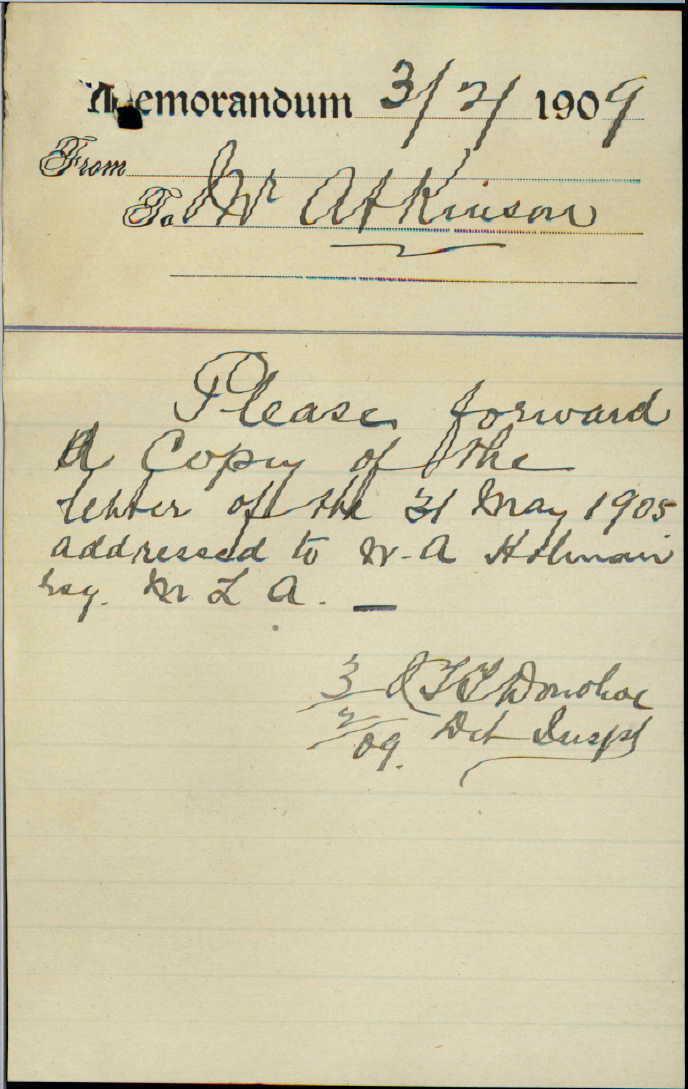 Memorandum 3/2/1909
From
To Mr Atkinson
Please forward
a Copy of the
letter of the 31 May 1905
addressed to W. A Holman
Esq. M L A. —
3 Donohoe
2/09. Det Inspr